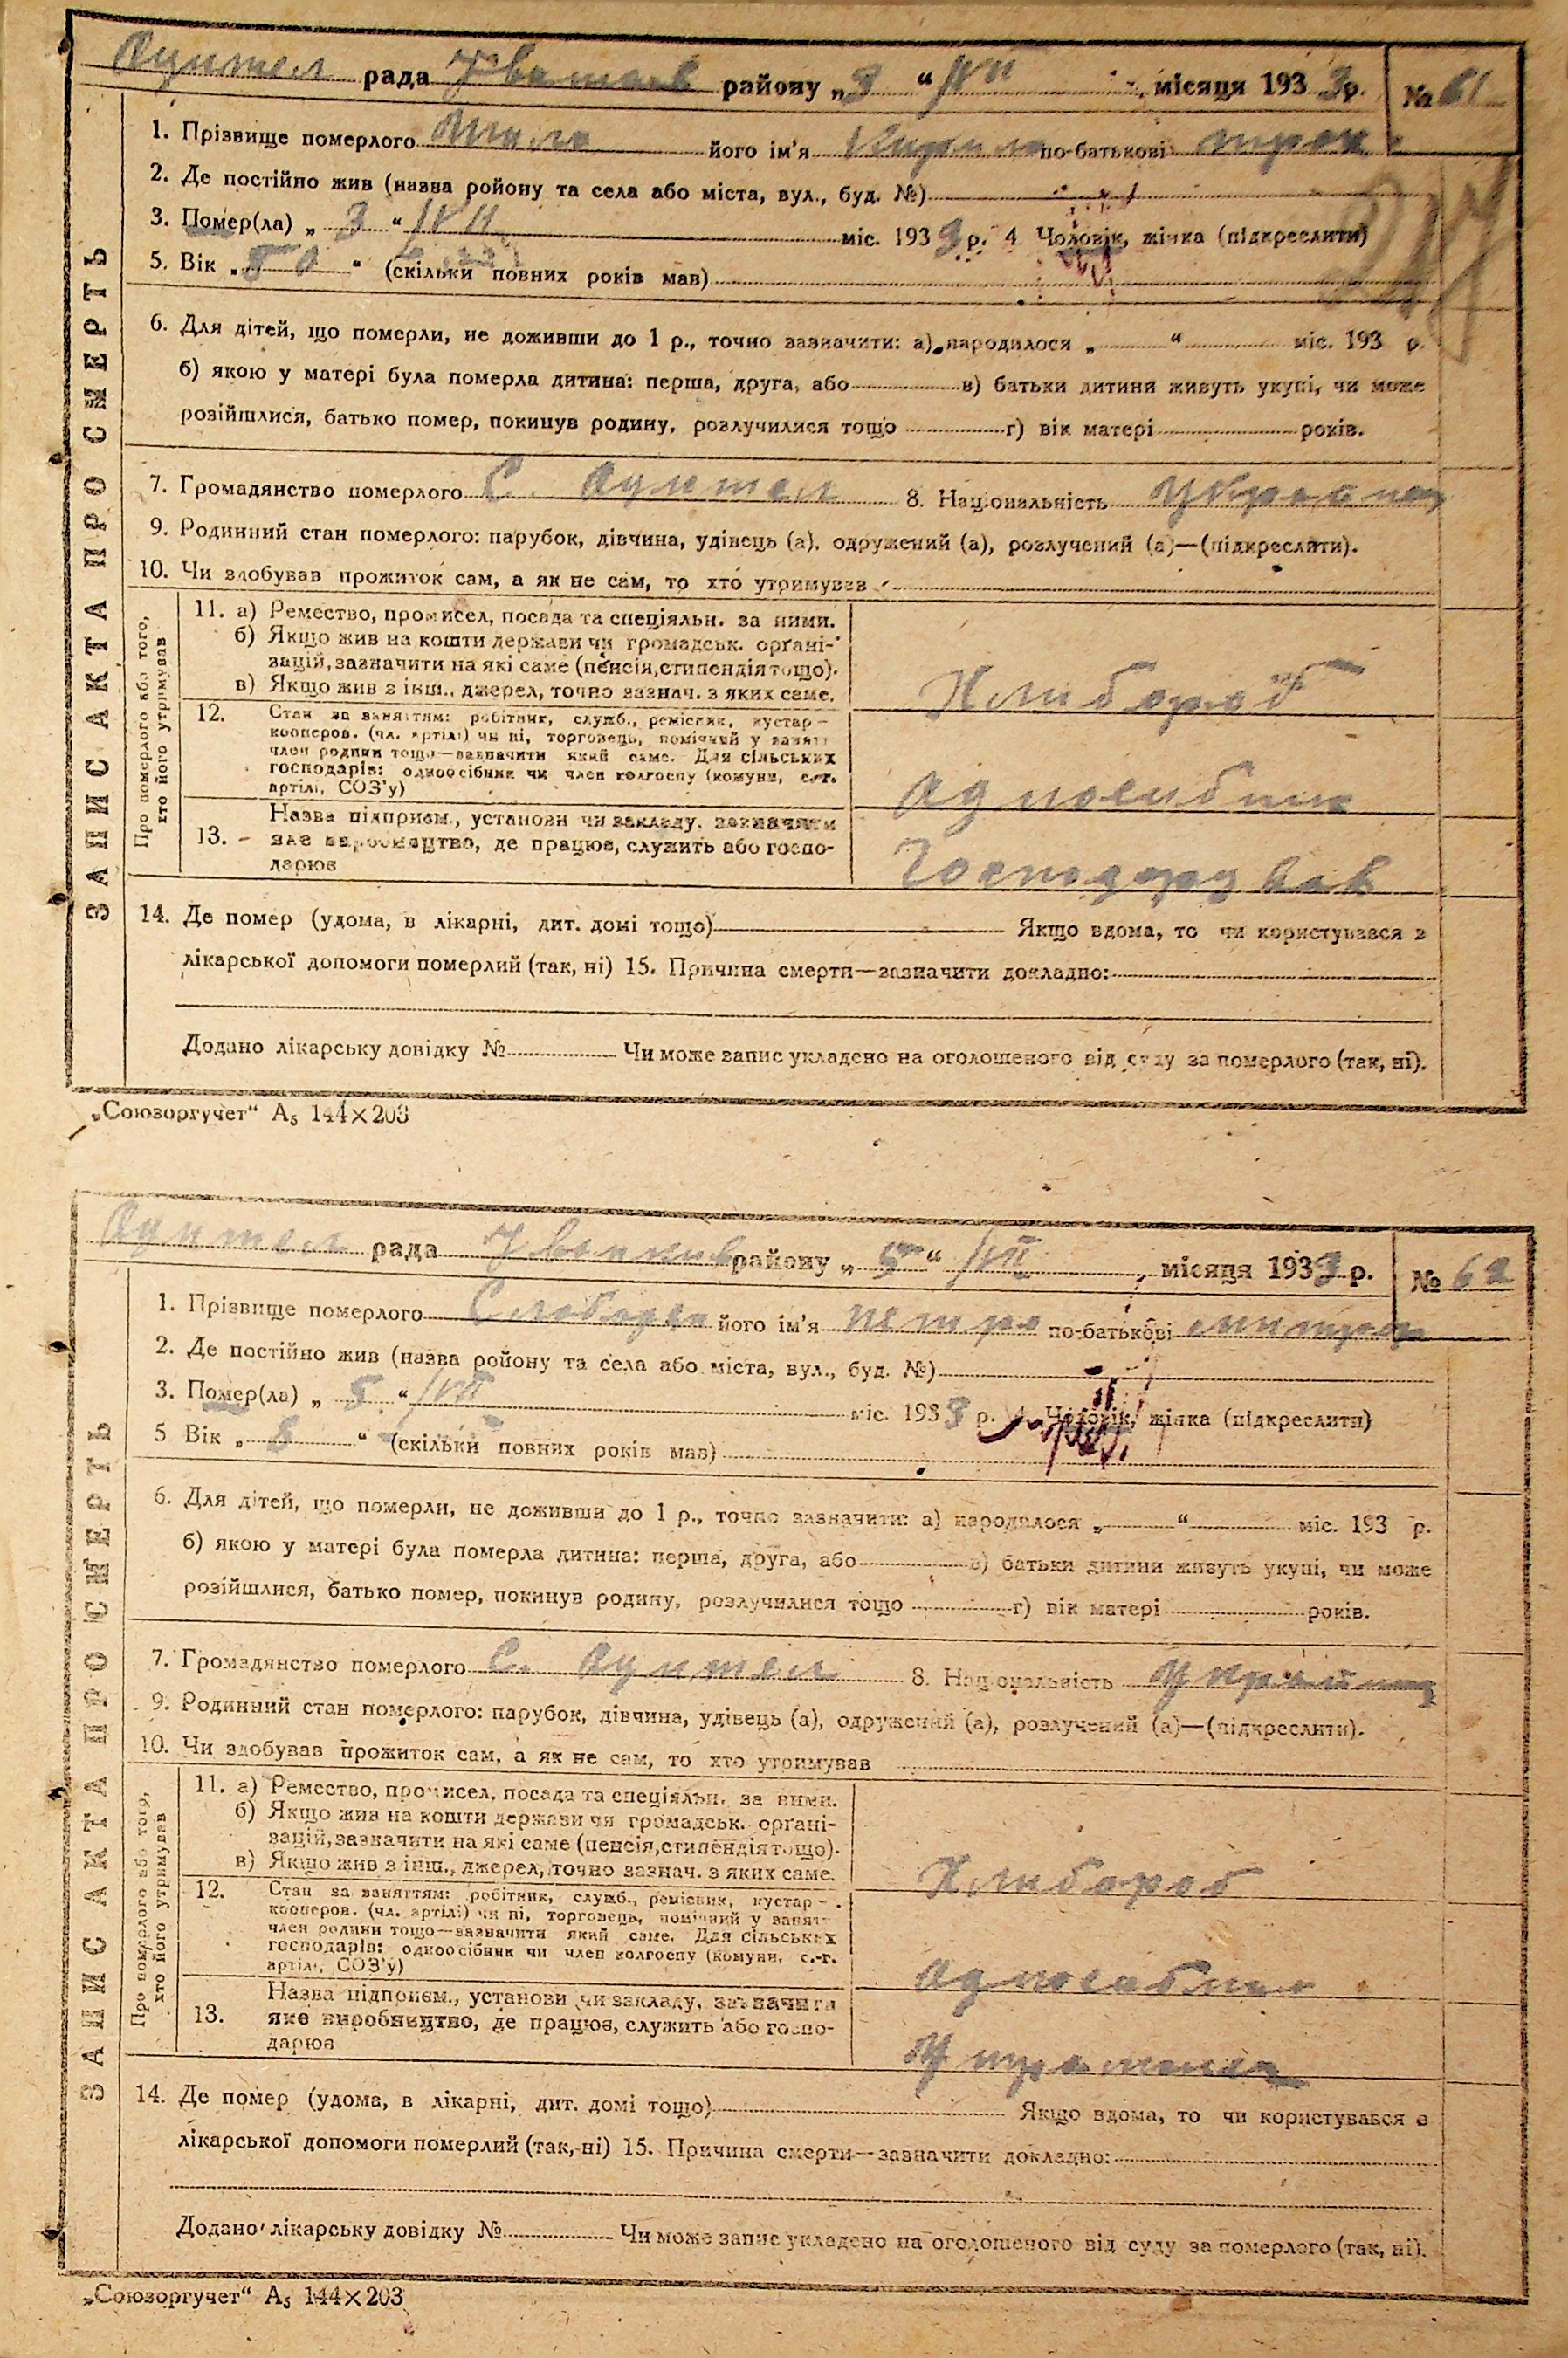 рада району „3“ місяця 1933р. № 61
ЗАПИС АКТА ПРО СМЕРТЬ
1. Прізвище померлого його ім'я Кирило по-батькові
2. Де постійно жив (назва ройону та села або міста, вул., буд. №)
3. Помер(ла) „3“ міс. 1933 р. 4. Чоловік, жінка (підкреслити)
5. Вік „50“ (скільки повних років мав)
6. Для дітей, що померли, не доживши до 1 р., точно зазначити: а) народилося „ “ міс. 193 р.
б) якою у матері була померла дитина: перша, друга, або в) батьки дитини живуть укупі, чи може
розійшлися, батько помер, покинув родину, розлучилися тощо г) вік матері років.
7. Громадянство померлого С. 8. Національність україінец
9. Родинний стан померлого: парубок, дівчина, удівець (а), одружений (а), розлучений (а)—(підкреслити).
10. Чи здобував прожиток сам, а як не сам, то хто утримував
Про померлого або того, хто його утримував
11. а) Ремество, промисел, посада та спеціяльн. за ними.
б) Якщо жив на кошти держави чи громадськ. органі-
зацій, зазначити на які саме (пенсія, стипендія тощо).
в) Якщо жив з інш., джерел, точно зазнач. з яких саме.
Хлибороб
12. Стан за заняттям: робітник, служб., ремісник, кустар-
кооперов. (чл. артілі) чи ні, торговець, помічний у занят-
член родини тощо—зазначити який саме. Для сільських
господарів: одноосібник чи член колгоспу (комуни, с.-г.
артілі, СОЗ'у)
Адносибник
13. Назва підприєм., установи чи закладу, зазначити
яке виробництво, де працює, служить або госпо-
дарює
Господарував
14. Де помер (удома, в лікарні, дит. домі тощо) Якщо вдома, то чи користувався з
лікарської допомоги померлий (так, ні) 15. Причина смерти—зазначити докладно:
Додано лікарську довідку № Чи може запис укладено на оголошеного від суду за померлого (так, ні).
„Союзоргучет“ А5 144×203
рада району „5“ /VII місяця 1933 р. № 62
ЗАПИС АКТА ПРО СМЕРТЬ
1. Прізвище померлого його ім'я петро по-батькові
2. Де постійно жив (назва ройону та села або міста, вул., буд. №)
3. Помер(ла) „5“ /VII міс. 1933 р. 4. Чоловік, жінка (підкреслити)
5 Вік „ “ (скільки повних років мав)
6. Для дітей, що померли, не доживши до 1 р., точно зазначити: а) народилося „ “ міс. 193 р.
б) якою у матері була померла дитина: перша, друга, або в) батьки дитини живуть укупі, чи може
розійшлися, батько помер, покинув родину, розлучилися тощо г) вік матері років.
7. Громадянство померлого С. 8. Національність україинец
9. Родинний стан померлого: парубок, дівчина, удівець (а), одружений (а), розлучений (а)—(підкреслити).
10. Чи здобував прожиток сам, а як не сам, то хто утримував
Про померлого або того, хто його утримував
11. а) Ремество, промисел, посада та спеціяльн. за ними.
б) Якщо жив на кошти держави чи громадськ. органі-
зацій, зазначити на які саме (пенсія, стипендія тощо).
в) Якщо жив з інш., джерел, точно зазнач. з яких саме.
Хлибороб
12. Стан за заняттям: робітник, служб., ремісник, кустар-
кооперов. (чл. артілі) чи ні, торговець, помічний у занят-
член родини тощо—зазначити який саме. Для сільських
господарів: одноосібник чи член колгоспу (комуни, с.-г.
артілі, СОЗ'у)
Адносибник
13. Назва підприєм., установи чи закладу, зазначити
яке виробництво, де працює, служить або госпо-
дарює
14. Де помер (удома, в лікарні, дит. домі тощо) Якщо вдома, то чи користувався з
лікарської допомоги померлий (так, ні) 15. Причина смерти—зазначити докладно:
Додано лікарську довідку № Чи може запис укладено на оголошеного від суду за померлого (так, ні).
„Союзоргучет“ А5 144×203